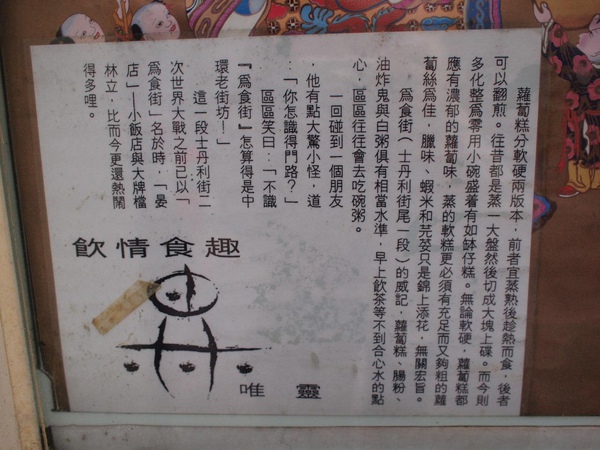 蘿蔔糕分軟硬兩版本，前者宜蒸熟後趁熱而食，後者
可以翻煎。往昔都是蒸一大盤然後切成大塊上碟。而今則
多化整爲零用小碗盛着有如缽仔糕。無論軟硬，蘿蔔糕都
應有濃郁的蘿蔔味，蒸的軟糕更必須有充足而又夠粗的蘿
蔔絲爲佳，臘味、蝦米和芫荽只是錦上添花，無關宏旨。
爲食街（士丹利街尾一段）的威記，蘿蔔糕、腸粉、
油炸鬼與白粥俱有相當水準，早上飲茶等不到合心水的點
心，區區往往會去吃碗粥。
一回碰到一個朋友
，他有點大驚小怪，道
：「你怎識得門路？」
區區笑曰：「不識
『爲食街』怎算得是中
環老街坊！」
這一段士丹利街二
次世界大戰之前已以「
爲食街」名於時，「晏
店」─小飯店與大牌檔
林立，比而今更還熱鬧
得多哩。
飲情食趣
唯靈